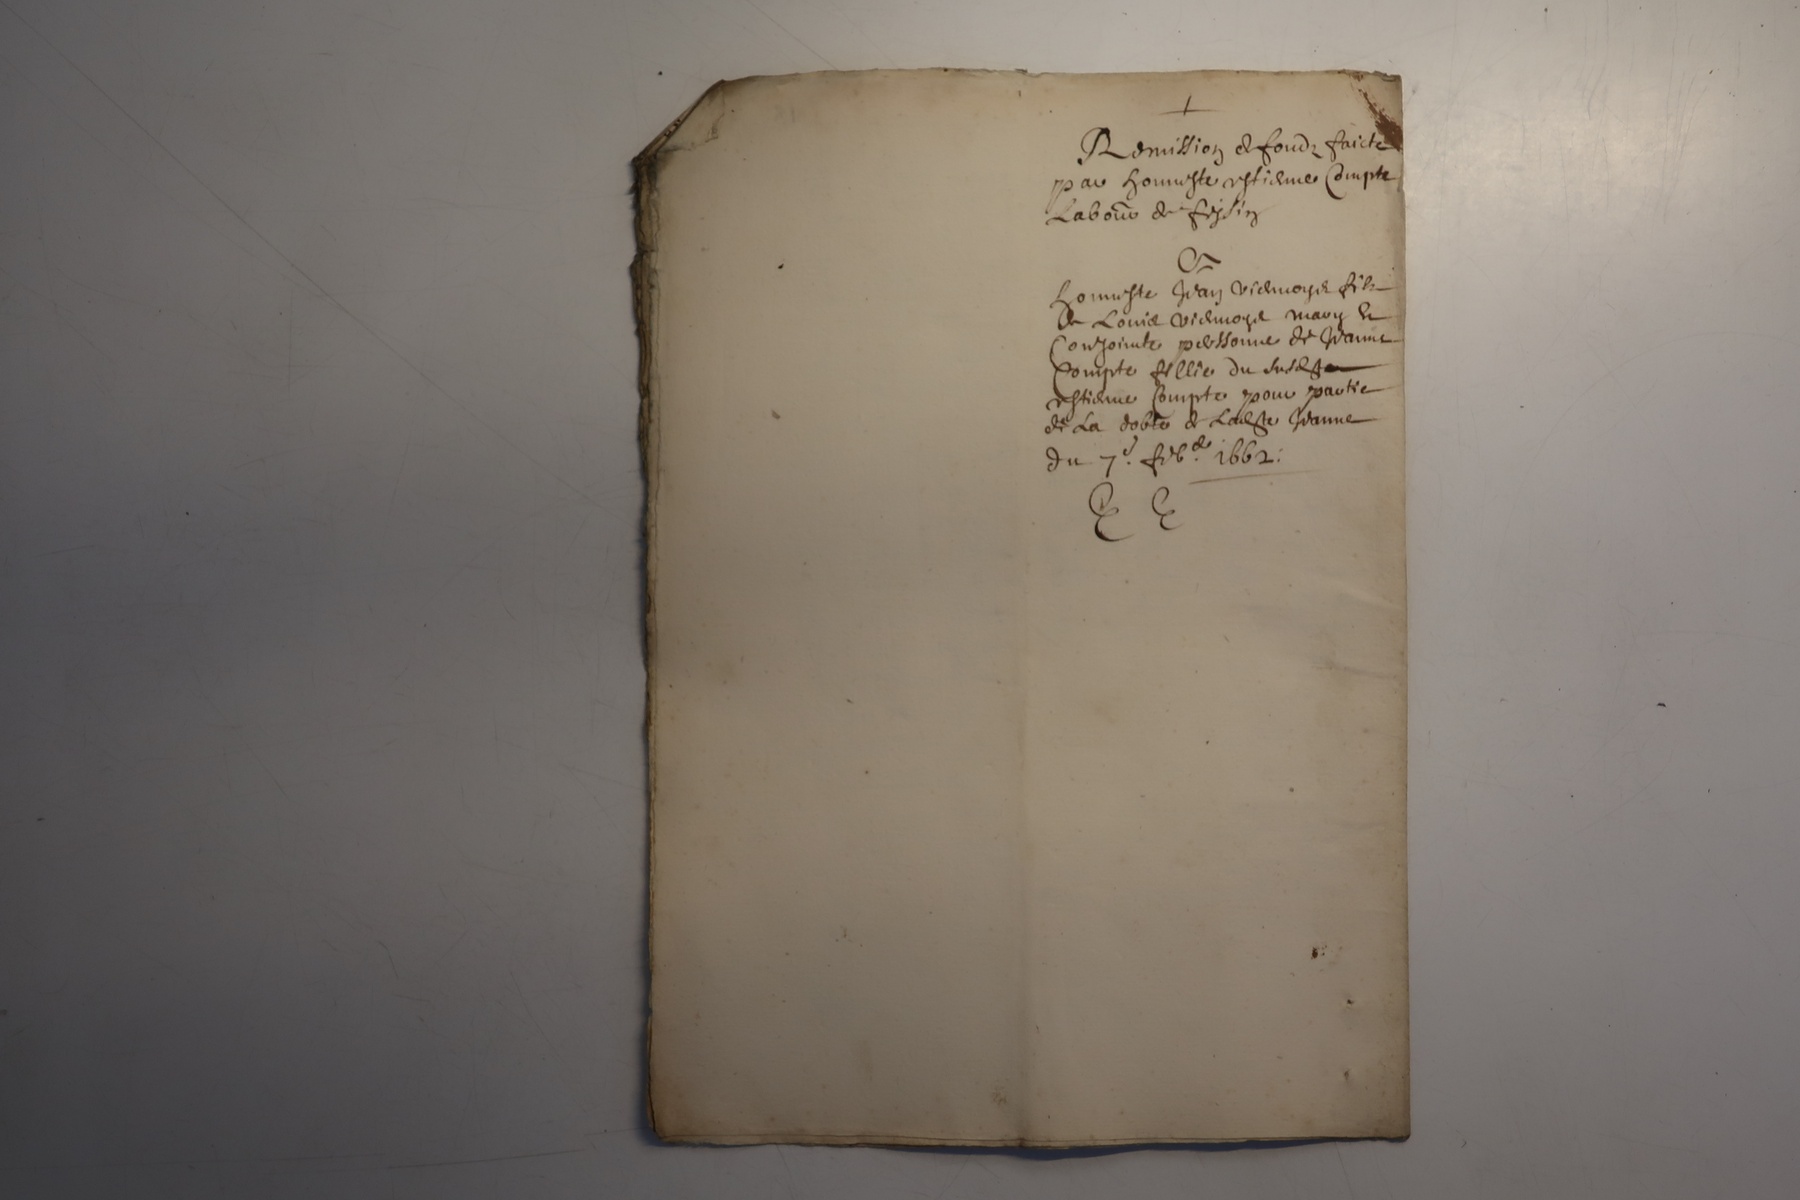 +
Remission de fondz faicte
par honneste estienne Compte
Labour de feysin
A
honneste Jean viemoye filz
de Louis viemoye mary et
Conjointe personne de Jeanne
Compte fillie du susdit
estienne Compte pour partie
de La dobte de Ladite Jeanne
du 7e. feb. 1662: